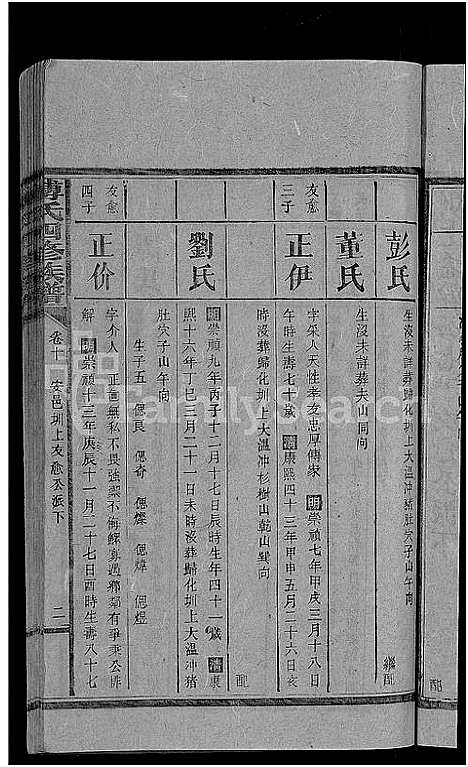 彭氏
生沒未詳葬歸化圳上大溫沖猪肚穴子山午向
繼配
董氏
生沒未詳葬夫山同向
友愈三子
正伊
字采人天性孝友忠厚傳家 明崇禎七年甲戌三月十八日
午時生壽七十歲 清康熙四十三年甲申五月二十六日亥
時沒葬歸化圳上大溫沖杉樹山乾山巽向
配
劉氏
明崇禎九年丙子十二月十七日辰時生年四十一歲 清康
熙十六年丁巳三月二十一日未時沒葬歸化圳上大溫沖猪
肚穴子山午向
生子五 偲良 偲奇 偲燦 偲煒 偲煜
友愈四子
正价
字介人 正直無私不畏強禦不侮鰥寡過鄉鄰有爭秉公排
解 明崇禎十三年庚辰十一月二十七日酉時生壽八十七
氏四修族譜
卷十 安邑圳上友愈公派下
二
配
FamilySearch